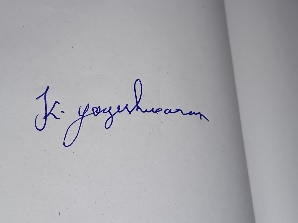 K. yogeshwaran